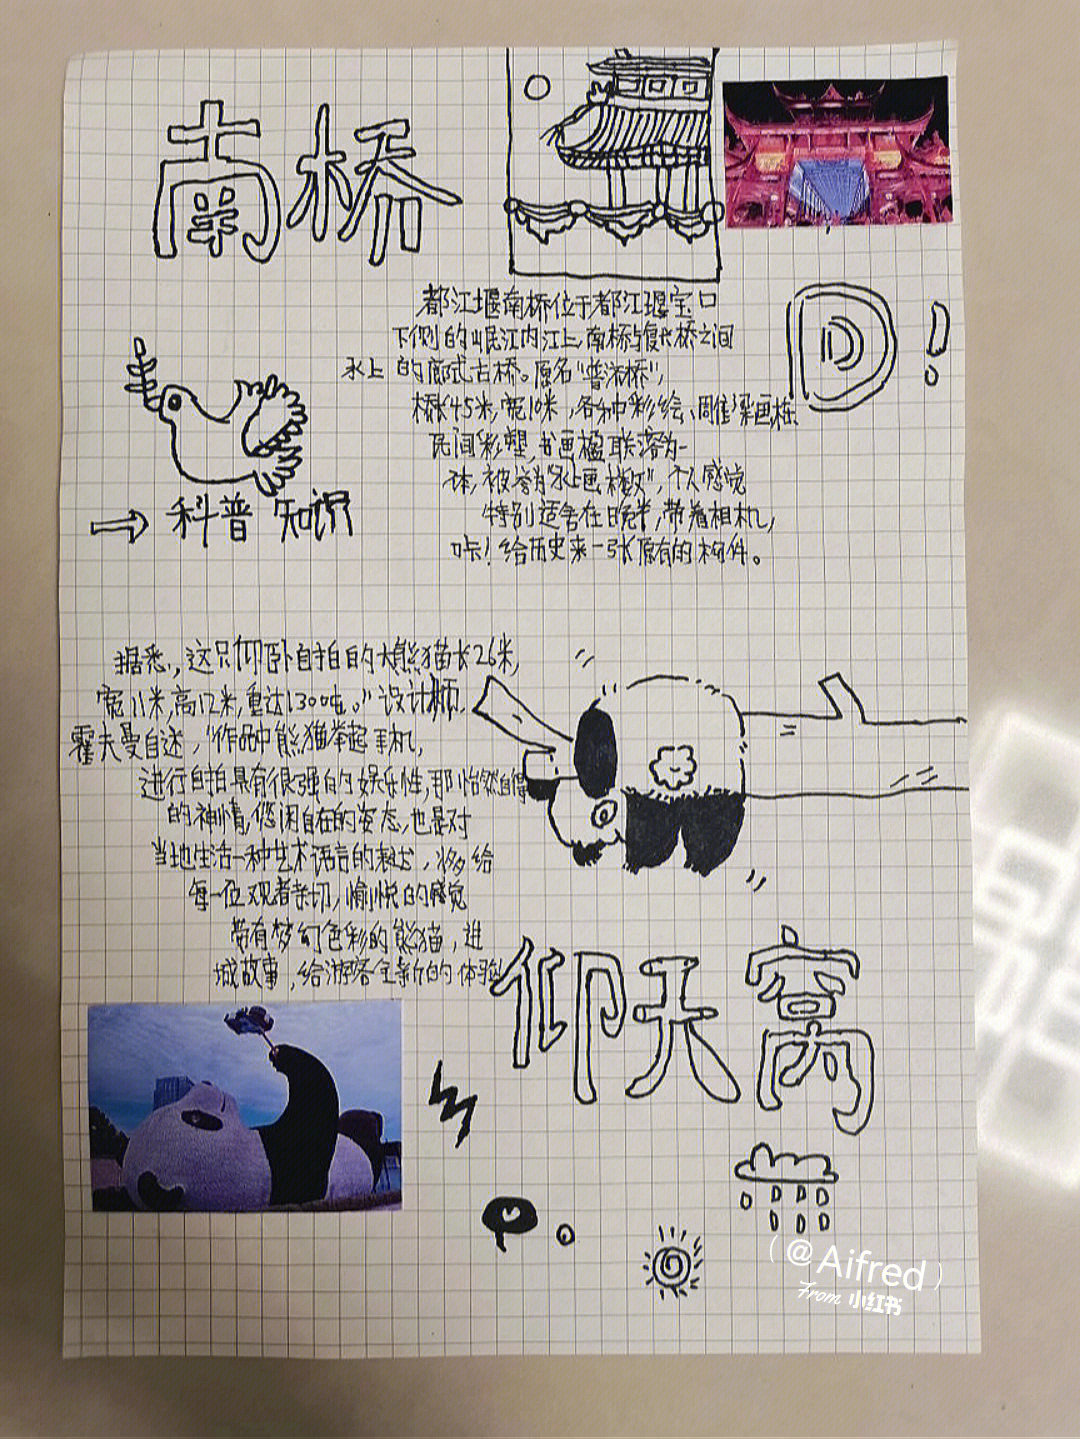 南桥
都江堰南桥位于都江堰宝口
下侧的岷江内江上,南桥与复兴桥之间
水上的廊式古桥。原名“普济桥”,
桥长45米,宽10米,各种彩绘、雕梁画栋、
民间彩塑,书画楹联溶为一
体,被誉为“水上画楼”,个人感觉
特别适合在晚半,带着相机,
咔!给历史来一张原有的构件。
D!
→科普知识
据悉,,这只仰卧自拍的大熊猫长26米,
宽11米,高12米,重达130吨。”设计师,
霍夫曼自述,“作品中熊猫举起手机,
进行自拍具有很强的娱乐性,那怡然自得
的神情,悠闲自在的姿态,也是对
当地生活一种艺术语言的表达,将给
每一位观者亲切,愉悦的感觉
带有梦幻色彩的熊猫,进
城故事,给游客全新的体验
仰天窝
(@Aifred)
From 小红书